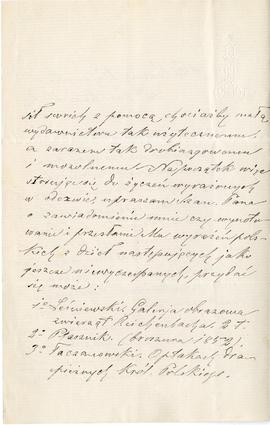 sił swoich z pomocą chociażby małą
wydawnictwu tak użytecznemu,
a zarazem tak drobiazgowemu
i mozolnemu. Na początek więc
stosując się do życzeń wyrażonych
w odezwie, upraszam Szan. Pana
o zawiadomienie mnie czy wynoto-
wanie i przesłanie Mu wyrazów pols-
kich z dzieł następujących, jako
jeszcze niewyczerpanych, przydać
się może:
1o Leśniewski, Galerja obrazowa
zwierząt Reichenbacha 2 t.
2o Pisulewski. (broszura 1852).
3o Taczanowski. O ptakach dra-
pieżnych Król. Polskiego.